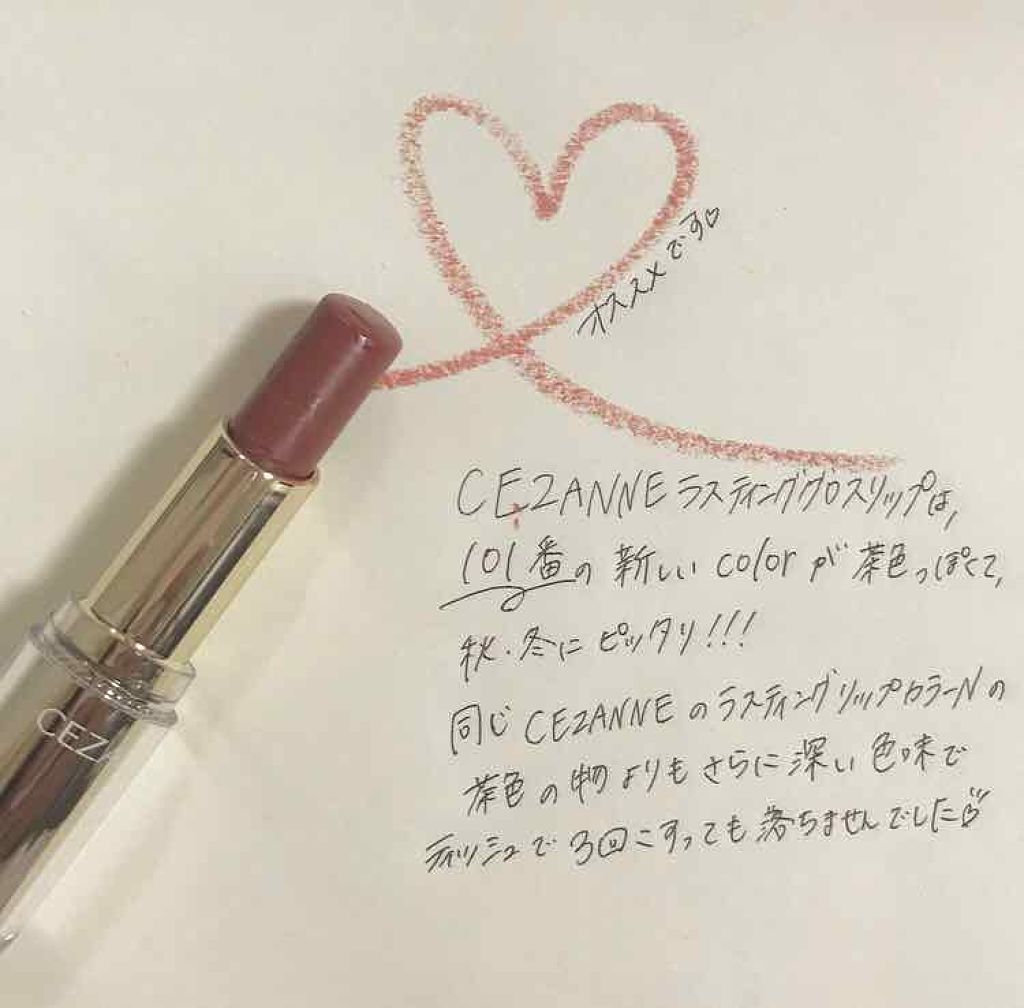 オススメです♡
CEZANNE ラスティンググロスリップは,
101番の 新しい color が 茶色っぽくて,
秋・冬に ピッタリ!!!
同じ CEZANNE の ラスティングリップカラーN の
茶色の物よりもさらに深い色味で
ティッシュで3回こすっても落ちませんでした
CEZ